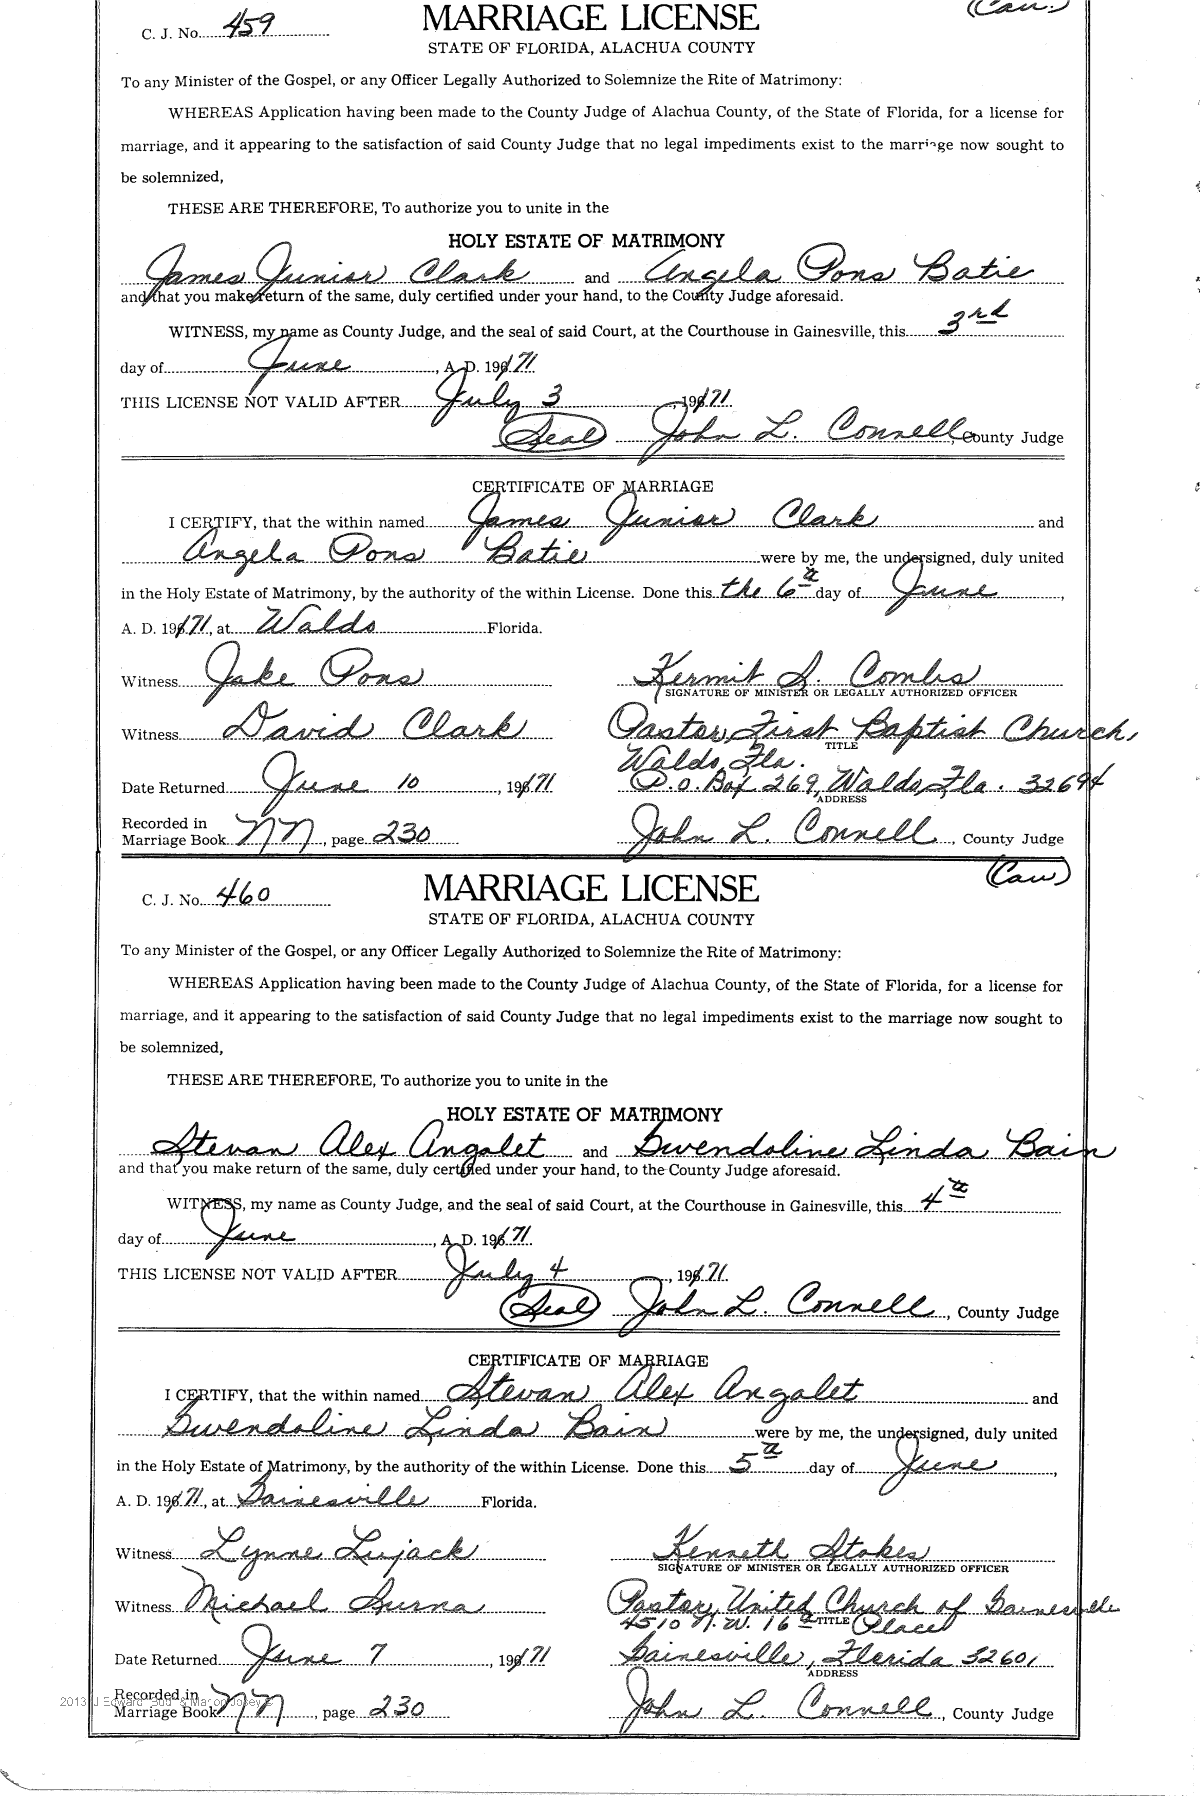 (Cau.)
C. J. No. 459
MARRIAGE LICENSE
STATE OF FLORIDA, ALACHUA COUNTY
To any Minister of the Gospel, or any Officer Legally Authorized to Solemnize the Rite of Matrimony:
WHEREAS Application having been made to the County Judge of Alachua County, of the State of Florida, for a license for
marriage, and it appearing to the satisfaction of said County Judge that no legal impediments exist to the marriage now sought to
be solemnized,
THESE ARE THEREFORE, To authorize you to unite in the
HOLY ESTATE OF MATRIMONY
James Junior Clark and Angela Pons Batie
and that you make return of the same, duly certified under your hand, to the County Judge aforesaid.
WITNESS, my name as County Judge, and the seal of said Court, at the Courthouse in Gainesville, this 3rd
day of June, A. D. 1971.
THIS LICENSE NOT VALID AFTER July 3, 1971.
(Seal) John L. Connell County Judge
CERTIFICATE OF MARRIAGE
I CERTIFY, that the within named James Junior Clark and
Angela Pons Batie were by me, the undersigned, duly united
in the Holy Estate of Matrimony, by the authority of the within License. Done this the 6th day of June,
A. D. 1971, at Waldo Florida.
Witness Jake Pons Kermit S. Combs
SIGNATURE OF MINISTER OR LEGALLY AUTHORIZED OFFICER
Witness David Clark Pastor, First Baptist Church,
TITLE
Waldo, Fla.
Date Returned June 10, 1971 P.O. Box 269, Waldo, Fla. 32694
ADDRESS
Recorded in
Marriage Book NN, page 230 John L. Connell, County Judge
(Cau)
C. J. No. 460
MARRIAGE LICENSE
STATE OF FLORIDA, ALACHUA COUNTY
To any Minister of the Gospel, or any Officer Legally Authorized to Solemnize the Rite of Matrimony:
WHEREAS Application having been made to the County Judge of Alachua County, of the State of Florida, for a license for
marriage, and it appearing to the satisfaction of said County Judge that no legal impediments exist to the marriage now sought to
be solemnized,
THESE ARE THEREFORE, To authorize you to unite in the
HOLY ESTATE OF MATRIMONY
Stevan Alex Angalet and Gwendoline Linda Bain
and that you make return of the same, duly certified under your hand, to the County Judge aforesaid.
WITNESS, my name as County Judge, and the seal of said Court, at the Courthouse in Gainesville, this 4th
day of June, A. D. 1971.
THIS LICENSE NOT VALID AFTER July 4, 1971.
(Seal) John L. Connell, County Judge
CERTIFICATE OF MARRIAGE
I CERTIFY, that the within named Stevan Alex Angalet and
Gwendoline Linda Bain were by me, the undersigned, duly united
in the Holy Estate of Matrimony, by the authority of the within License. Done this 5th day of June,
A. D. 1971, at Gainesville Florida.
Witness Lynne Lujack Kenneth Stokes
SIGNATURE OF MINISTER OR LEGALLY AUTHORIZED OFFICER
Witness Michael Pastor, United Church of Gainesville
4510 N.W. 16th TITLE Place
Date Returned June 7, 1971 Gainesville, Florida 32601
ADDRESS
Recorded in
Marriage Book NN, page 230 John L. Connell, County Judge
2013 J Edward "Bud" & Marion Josey ©